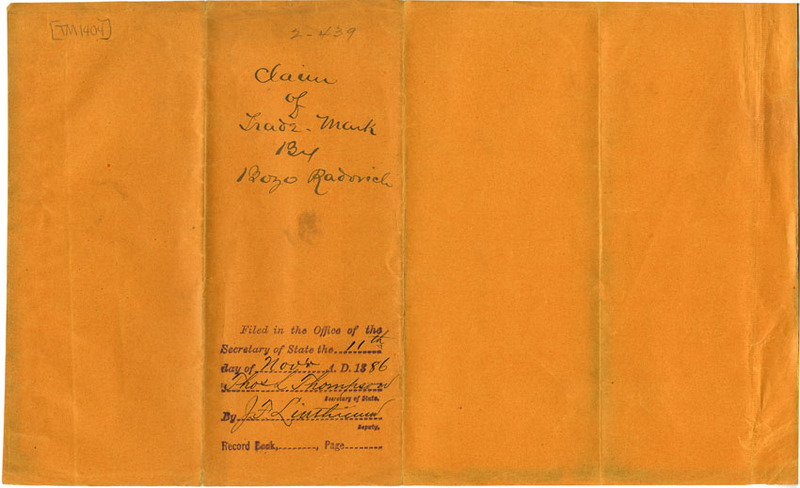 [TM1404]
2-439
Claim
of
Trade-Mark
By
Bozo Radovich
Filed in the Office of the
Secretary of State the 11th
day of Novr A. D. 1886
Thos L Thompson
Secretary of State.
By J. F. Linthicum
Deputy.
Record Book, ........, Page ........